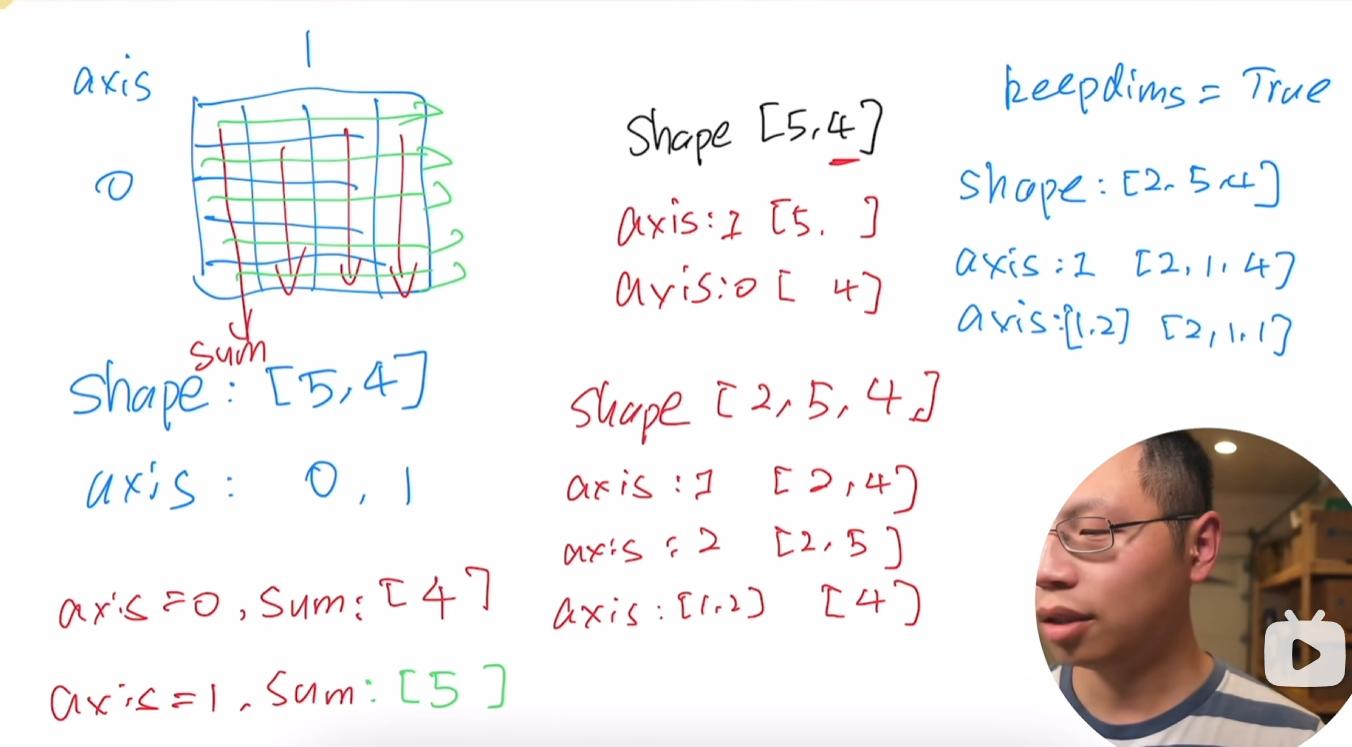 axis
1
0
sum
shape: [5,4]
axis: 0, 1
axis=0, sum: [4]
axis=1, sum: [5]
shape [5,4]
axis:1 [5, ]
axis:0 [ 4]
shape [2,5,4,]
axis:1 [2,4]
axis:2 [2,5]
axis:[1,2] [4]
keepdims=True
shape: [2,5,4]
axis:1 [2,1,4]
axis:[1,2] [2,1,1]